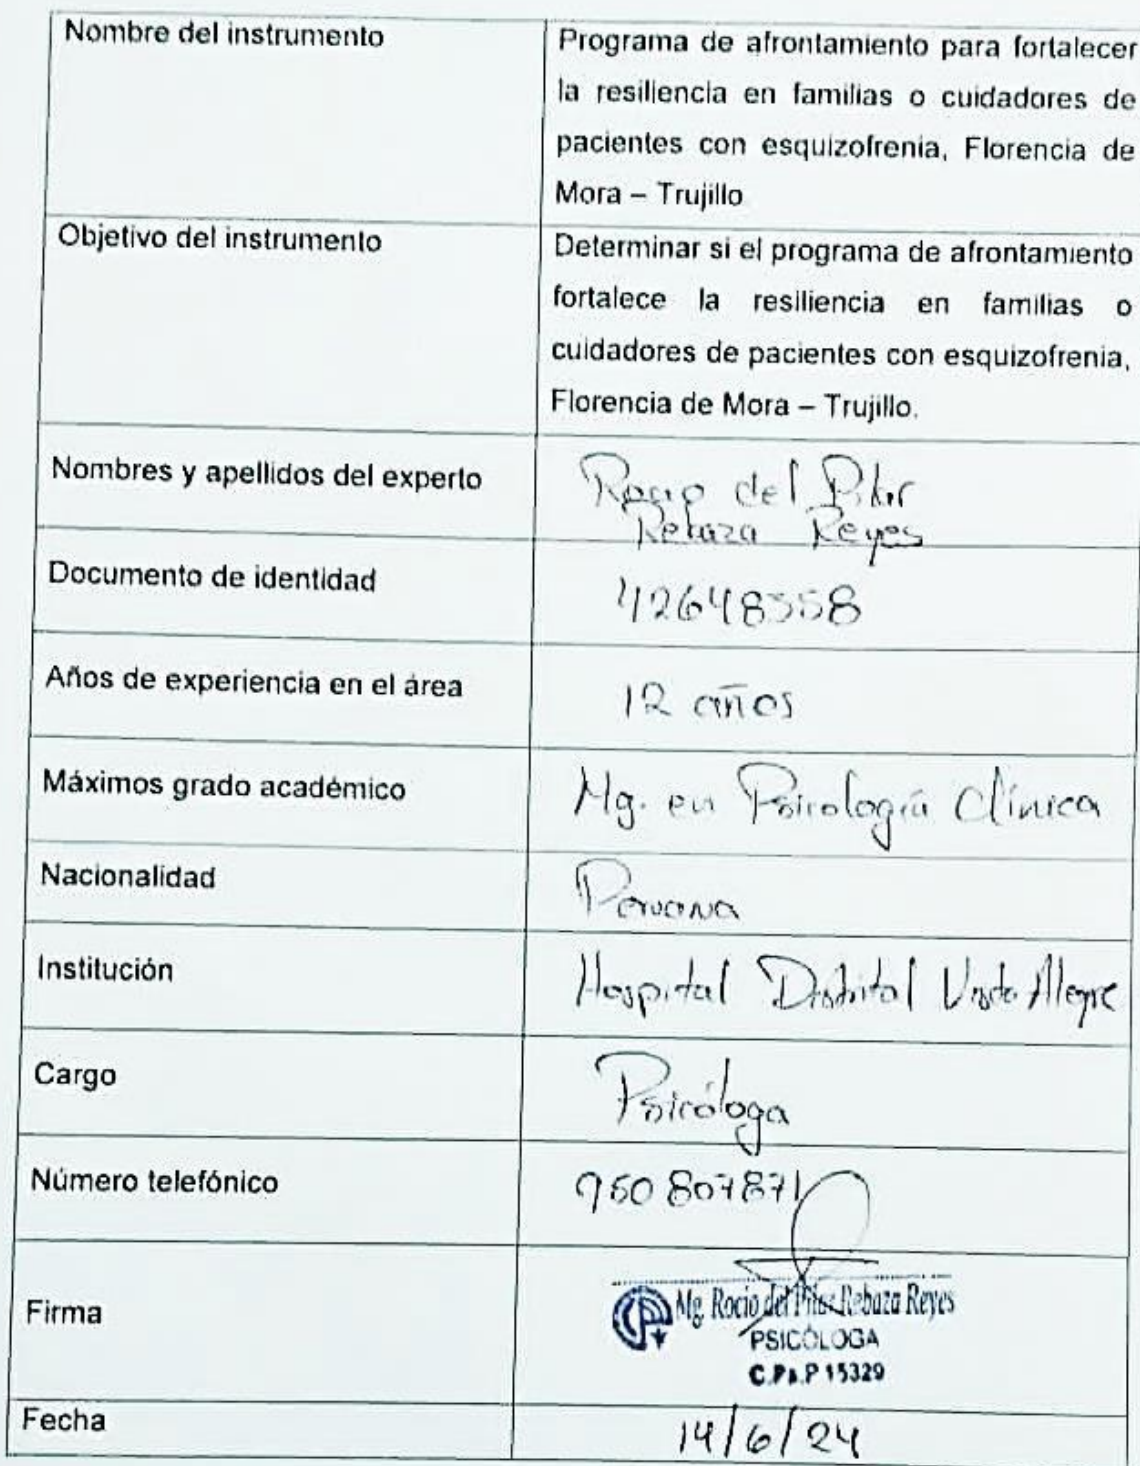 Nombre del instrumento
Programa de afrontamiento para fortalecer
la resiliencia en familias o cuidadores de
pacientes con esquizofrenia, Florencia de
Mora – Trujillo
Objetivo del instrumento
Determinar si el programa de afrontamiento
fortalece la resiliencia en familias o
cuidadores de pacientes con esquizofrenia,
Florencia de Mora – Trujillo.
Nombres y apellidos del experto
Rocio del Pilar
Rebaza Reyes
Documento de identidad
42648558
Años de experiencia en el área
12 años
Máximos grado académico
Mg. en Psicología Clínica
Nacionalidad
Peruana
Institución
Hospital Distrital Vista Alegre
Cargo
Psicóloga
Número telefónico
960 807871
Firma
Mg. Rocio del Pilar Rebaza Reyes
PSICÓLOGA
C.Ps.P 15329
Fecha
14/6/24